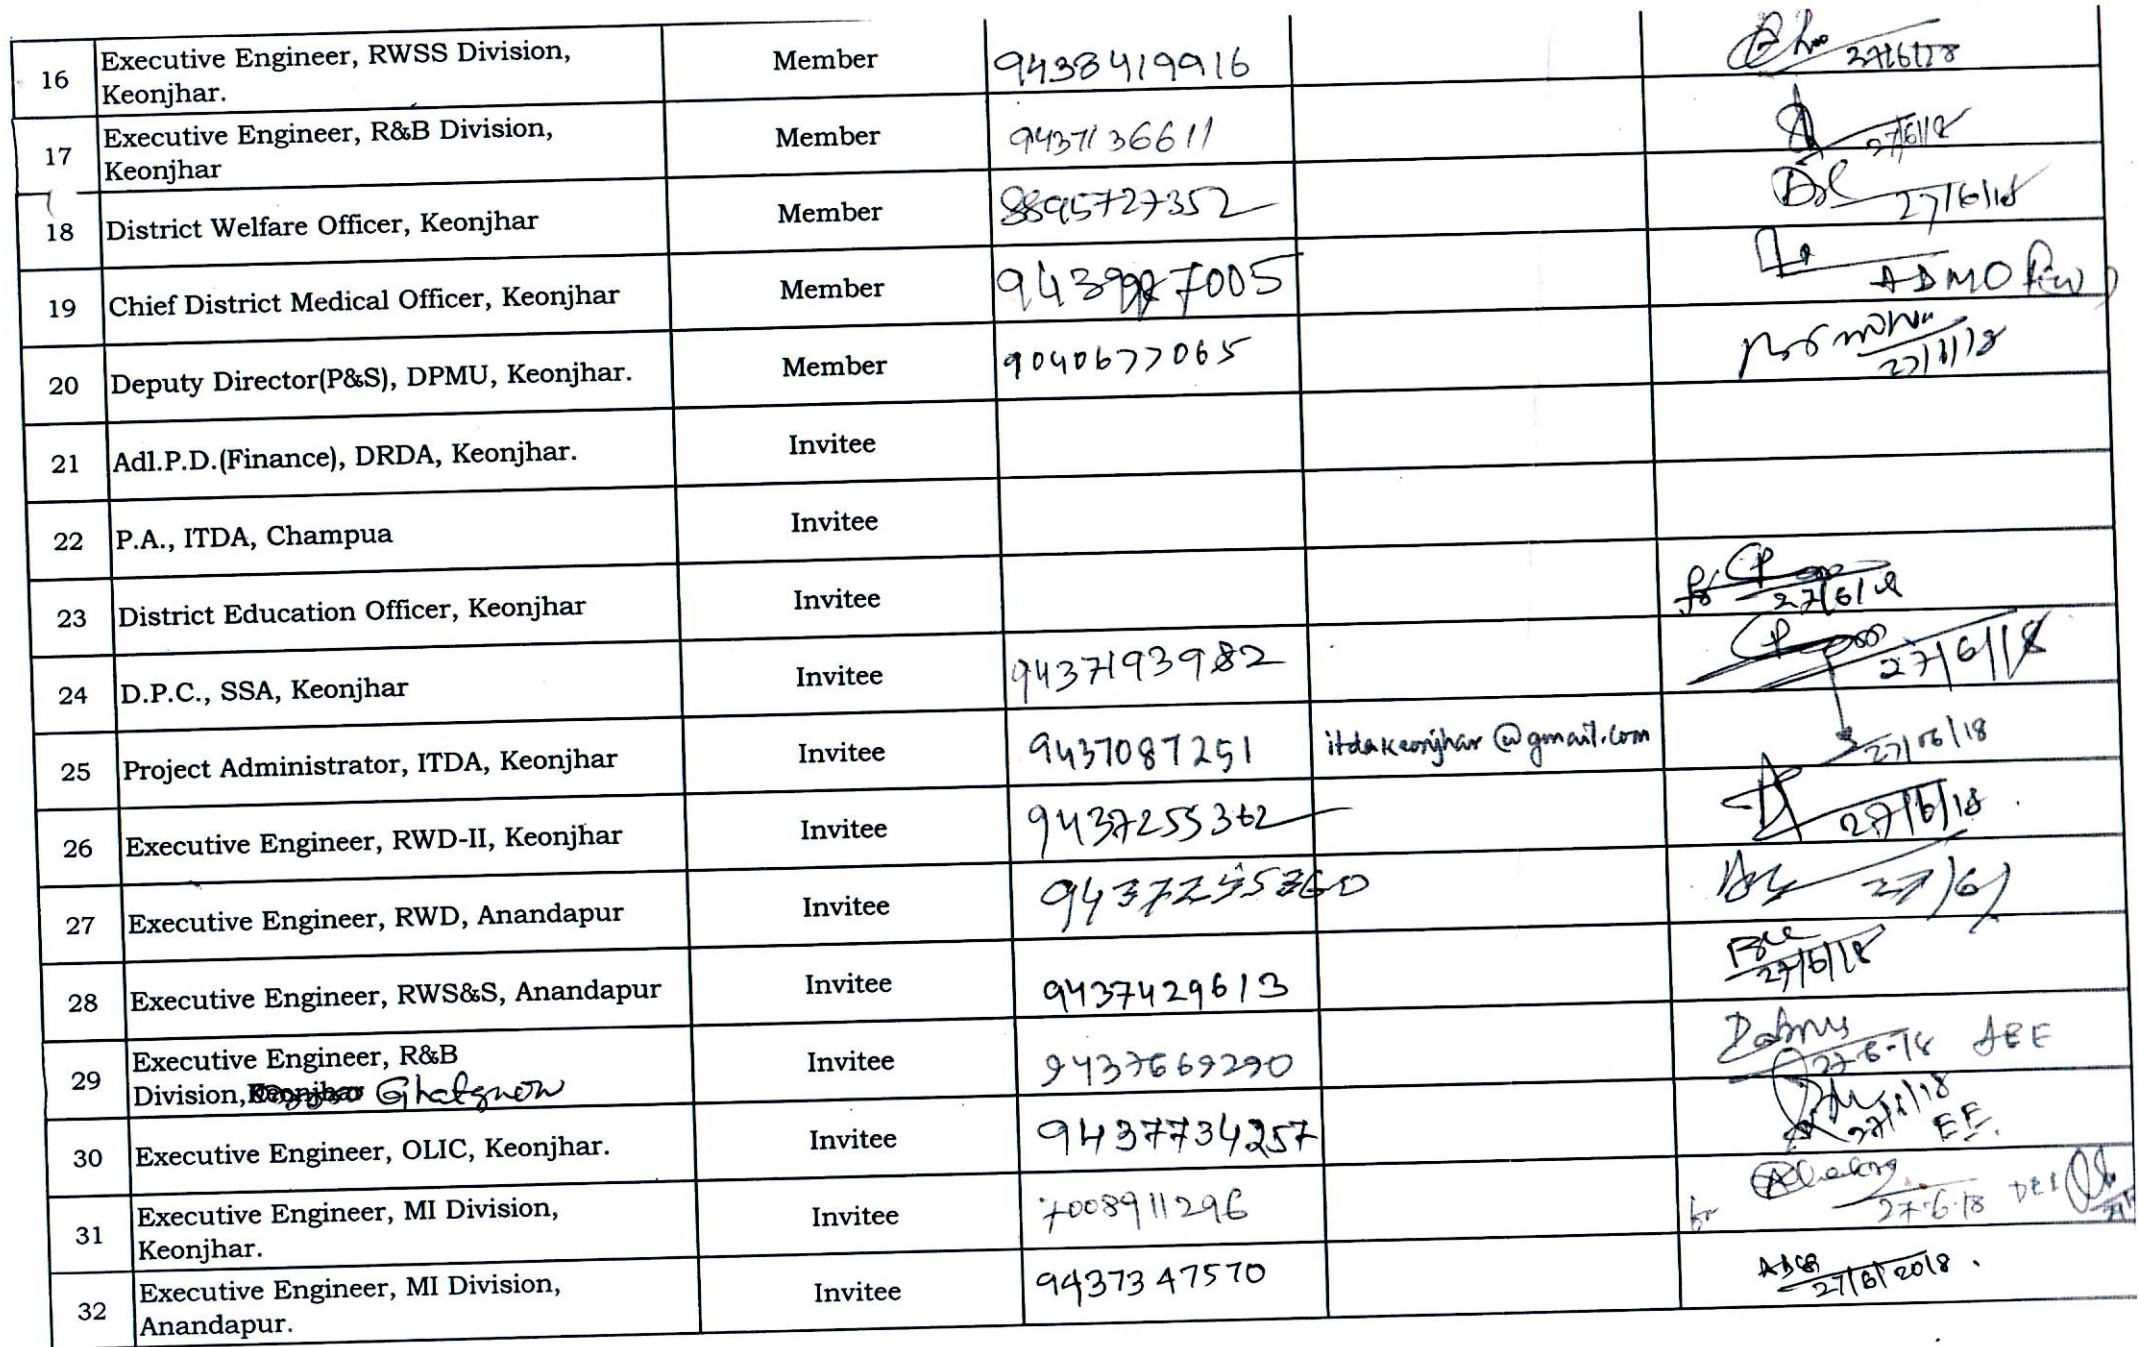 16 Executive Engineer, RWSS Division, Member 9438419916 27/6/18
Keonjhar.
17 Executive Engineer, R&B Division, Member 9437136611 27/6/18
Keonjhar
18 District Welfare Officer, Keonjhar Member 8895727352 27/6/18
19 Chief District Medical Officer, Keonjhar Member ADMO
20 Deputy Director(P&S), DPMU, Keonjhar. Member 9040677065
21 Adl.P.D.(Finance), DRDA, Keonjhar. Invitee
22 P.A., ITDA, Champua Invitee
23 District Education Officer, Keonjhar Invitee 27/6/18
24 D.P.C., SSA, Keonjhar Invitee 9437193982 27/6/18
25 Project Administrator, ITDA, Keonjhar Invitee 9437087251 itdakeonjhar@gmail.com 27/06/18
26 Executive Engineer, RWD-II, Keonjhar Invitee 9437255362 27/6/18
27 Executive Engineer, RWD, Anandapur Invitee 27/6/
28 Executive Engineer, RWS&S, Anandapur Invitee 9437429613 27/6/18
29 Executive Engineer, R&B Invitee 9437669290 27-6-18 AEE
Division,
30 Executive Engineer, OLIC, Keonjhar. Invitee 9437734257 EE.
31 Executive Engineer, MI Division, Invitee 7008911296 for 27-6-18
Keonjhar.
32 Executive Engineer, MI Division, Invitee 9437347570 27/6/2018.
Anandapur.